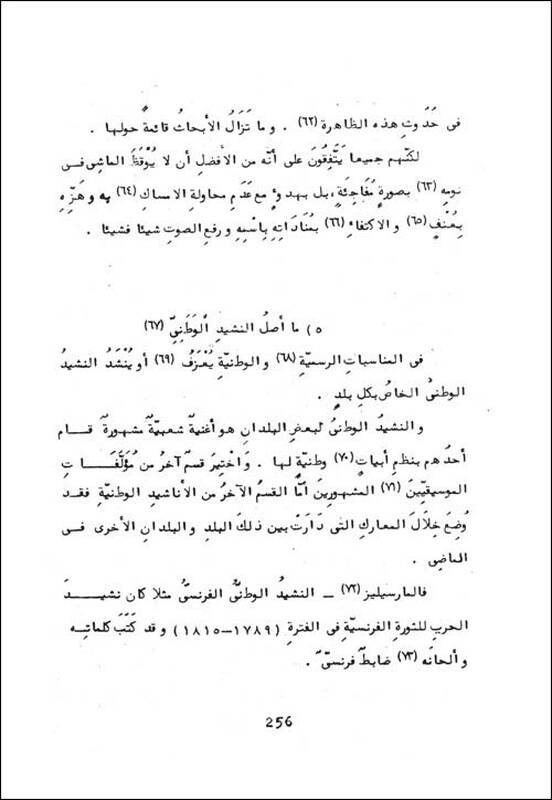 فى حَدَوثِ هذه الظاهرة (٦٢) . وما تَزَالُ الأبحاثُ قائمةً حولها .
لكنّهم جميعا يَتَّفِقُونَ على أنّه من الأفضلِ أن لا يُوْقَظَ الماشِى فى
نومِهِ (٦٣) بصورةٍ مُفَاجِئَةٍ، بل بهدوءٍ مع عَدَمِ محاولةِ الامساك (٦٤) به وهَزِّهِ
بِعُنْفٍ (٦٥) والاكتفاءِ (٦٦) بمُنَادَاتِهِ باسْمِهِ ورفعِ الصوتِ شيئا فشيئا .
٥) ما أصلُ النشيدِ الوَطَنِىِّ (٦٧)
فى المناسباتِ الرسميّةِ (٦٨) والوطنيّةِ يُعْزَفُ (٦٩) أو يُنْشَدُ النشيدُ
الوطنىُّ الخاصُّ بكلِّ بلدٍ .
والنشيدُ الوطنىُّ لبعضِ البلدانِ هو أغنيةٌ شعبيّةٌ مشهورةٌ قام
أحدُهم بنظمِ أبياتٍ (٧٠) وطنيّةٍ لها . وَاخْتِيرَ قسمٌ آخرُ من مُؤَلَّفَاتِ
الموسيقيّينَ (٧١) المشهورينَ أمّا القسمُ الآخرُ من الأناشيدِ الوطنيّةِ فقد
وُضِعَ خِلَالَ المعاركِ التى دَارَتْ بين ذلكَ البلدِ والبلدانِ الأخرى فى
الماضِى .
فالمارسيليز (٧٢) ــ النشيدُ الوطنىُّ الفرنسىُّ مثلا كان نشيدَ
الحربِ للثورةِ الفرنسيّةِ فى الفترةِ (١٧٨٩–١٨١٥) وقد كَتَبَ كلماتِه
وألحانَه (٧٣) ضابطٌ فرنسىٌّ .
256